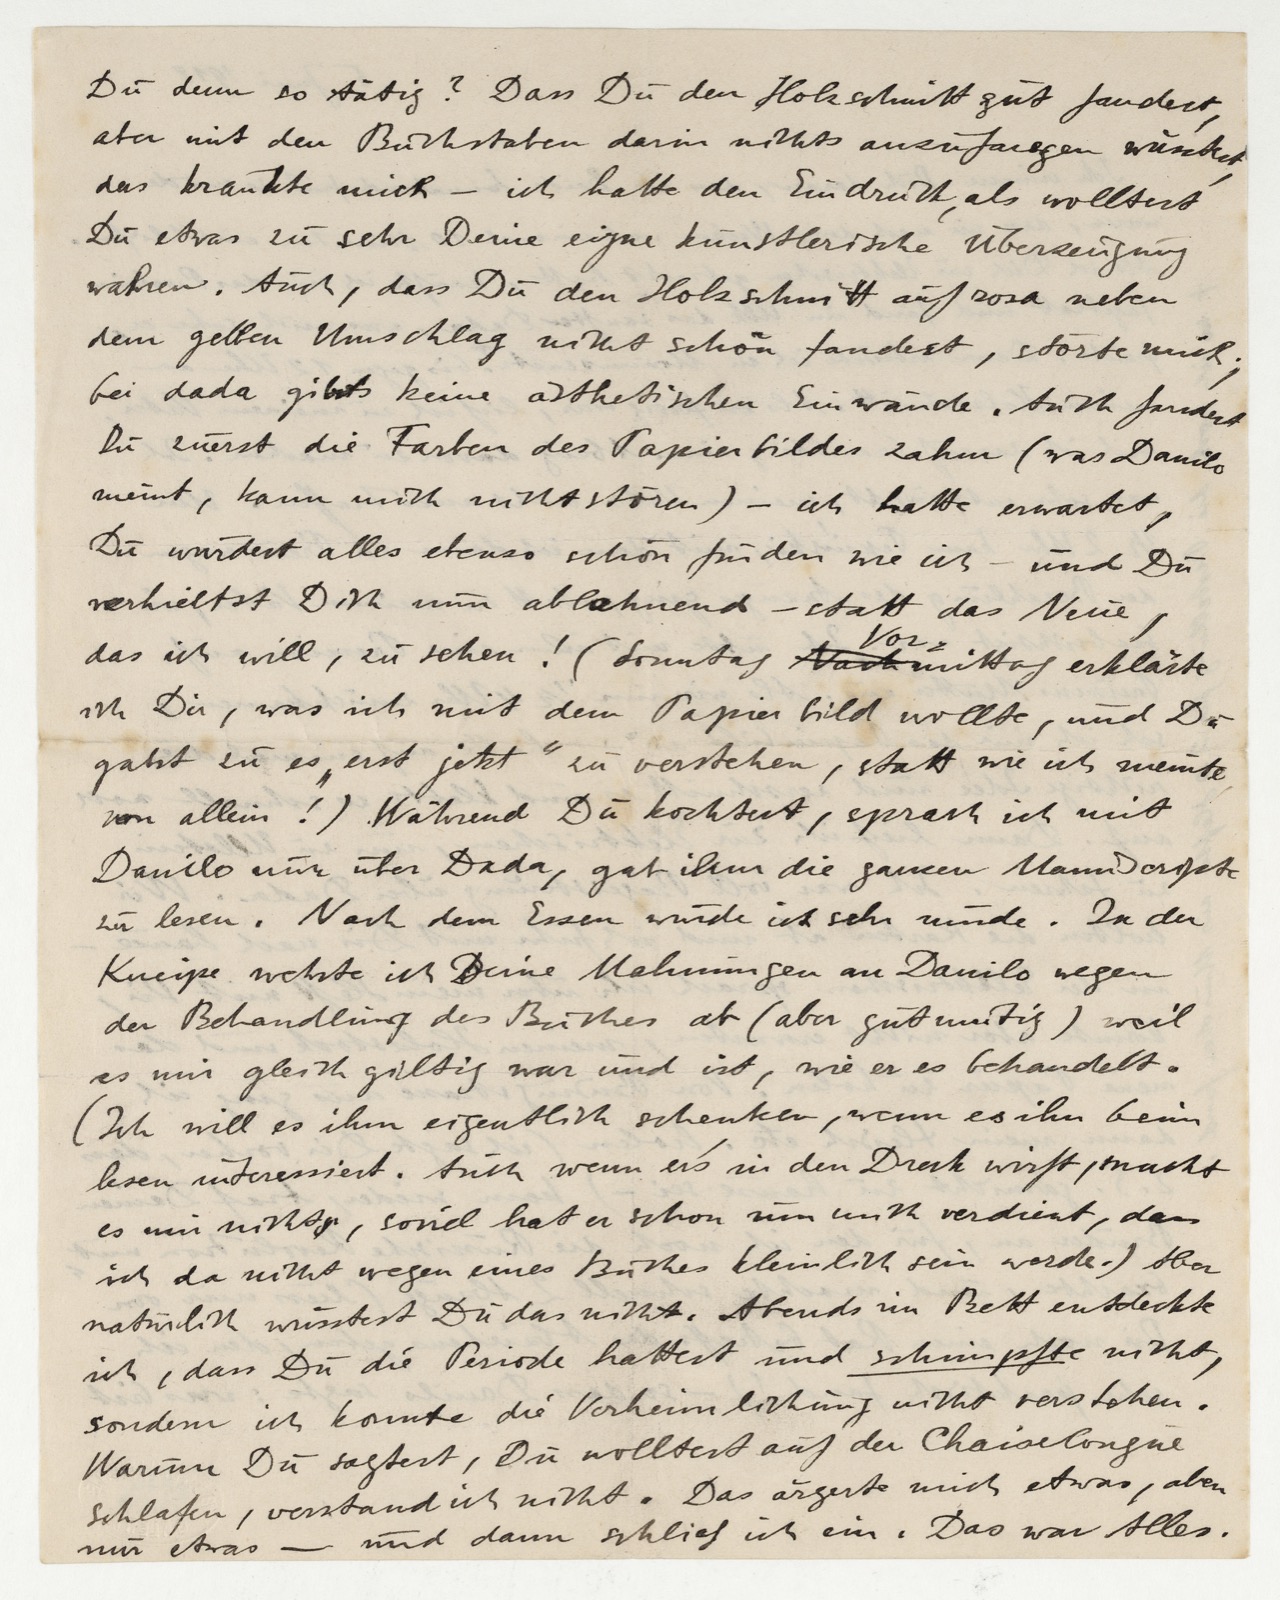 Du denn so tätig? Dass Du den Holzschnitt gut fandest,
aber mit den Buchstaben darin nichts anzufangen wüsstest,
das kränkte mich – ich hatte den Eindruck, als wolltest
Du etwas zu sehr Deine eigne künstlerische Überzeugung
wahren. Auch, dass Du den Holzschnitt auf rosa neben
dem gelben Umschlag nicht schön fandest, störte mich;
bei dada gibts keine ästhetischen Einwände. Auch fandest
Du zuerst die Farben des Papierbildes zahm (was Danilo
meint, kann mich nicht stören) – ich hatte erwartet,
Du würdest alles ebenso schön finden wie ich – und Du
verhieltst Dich nun ablehnend – statt das Neue,
das ich will, zu sehen! (Sonntag Vor-
Nachmittag erklärte
ich Dir, was ich mit dem Papierbild wollte, und Du
gabst zu es „erst jetzt“ zu verstehen, statt wie ich meinte,
von allein!) Während Du kochtest, sprach ich mit
Danilo nur über Dada, gab ihm die ganzen Manuscripte
zu lesen. Nach dem Essen wurde ich sehr müde. In der
Kneipe wehrte ich Deine Mahnungen an Danilo wegen
der Behandlung des Buches ab (aber gutmütig) weil
es mir gleichgiltig war und ist, wie er es behandelt.
(Ich will es ihm eigentlich schenken, wenn es ihn beim
lesen interessiert. Auch wenn er's in den Dreck wirft, macht
es mir nichts, soviel hat er schon um mich verdient, dass
ich da nicht wegen eines Buches kleinlich sein werde.) Aber
natürlich wusstest Du das nicht. Abends im Bett entdeckte
ich, dass Du die Periode hattest und schimpfte nicht,
sondern ich konnte die Verheimlichung nicht verstehen.
Warum Du sagtest, Du wolltest auf der Chaiselongue
schlafen, verstand ich nicht. Das ärgerte mich etwas, aber
nur etwas — und dann schlief ich ein. Das war Alles.